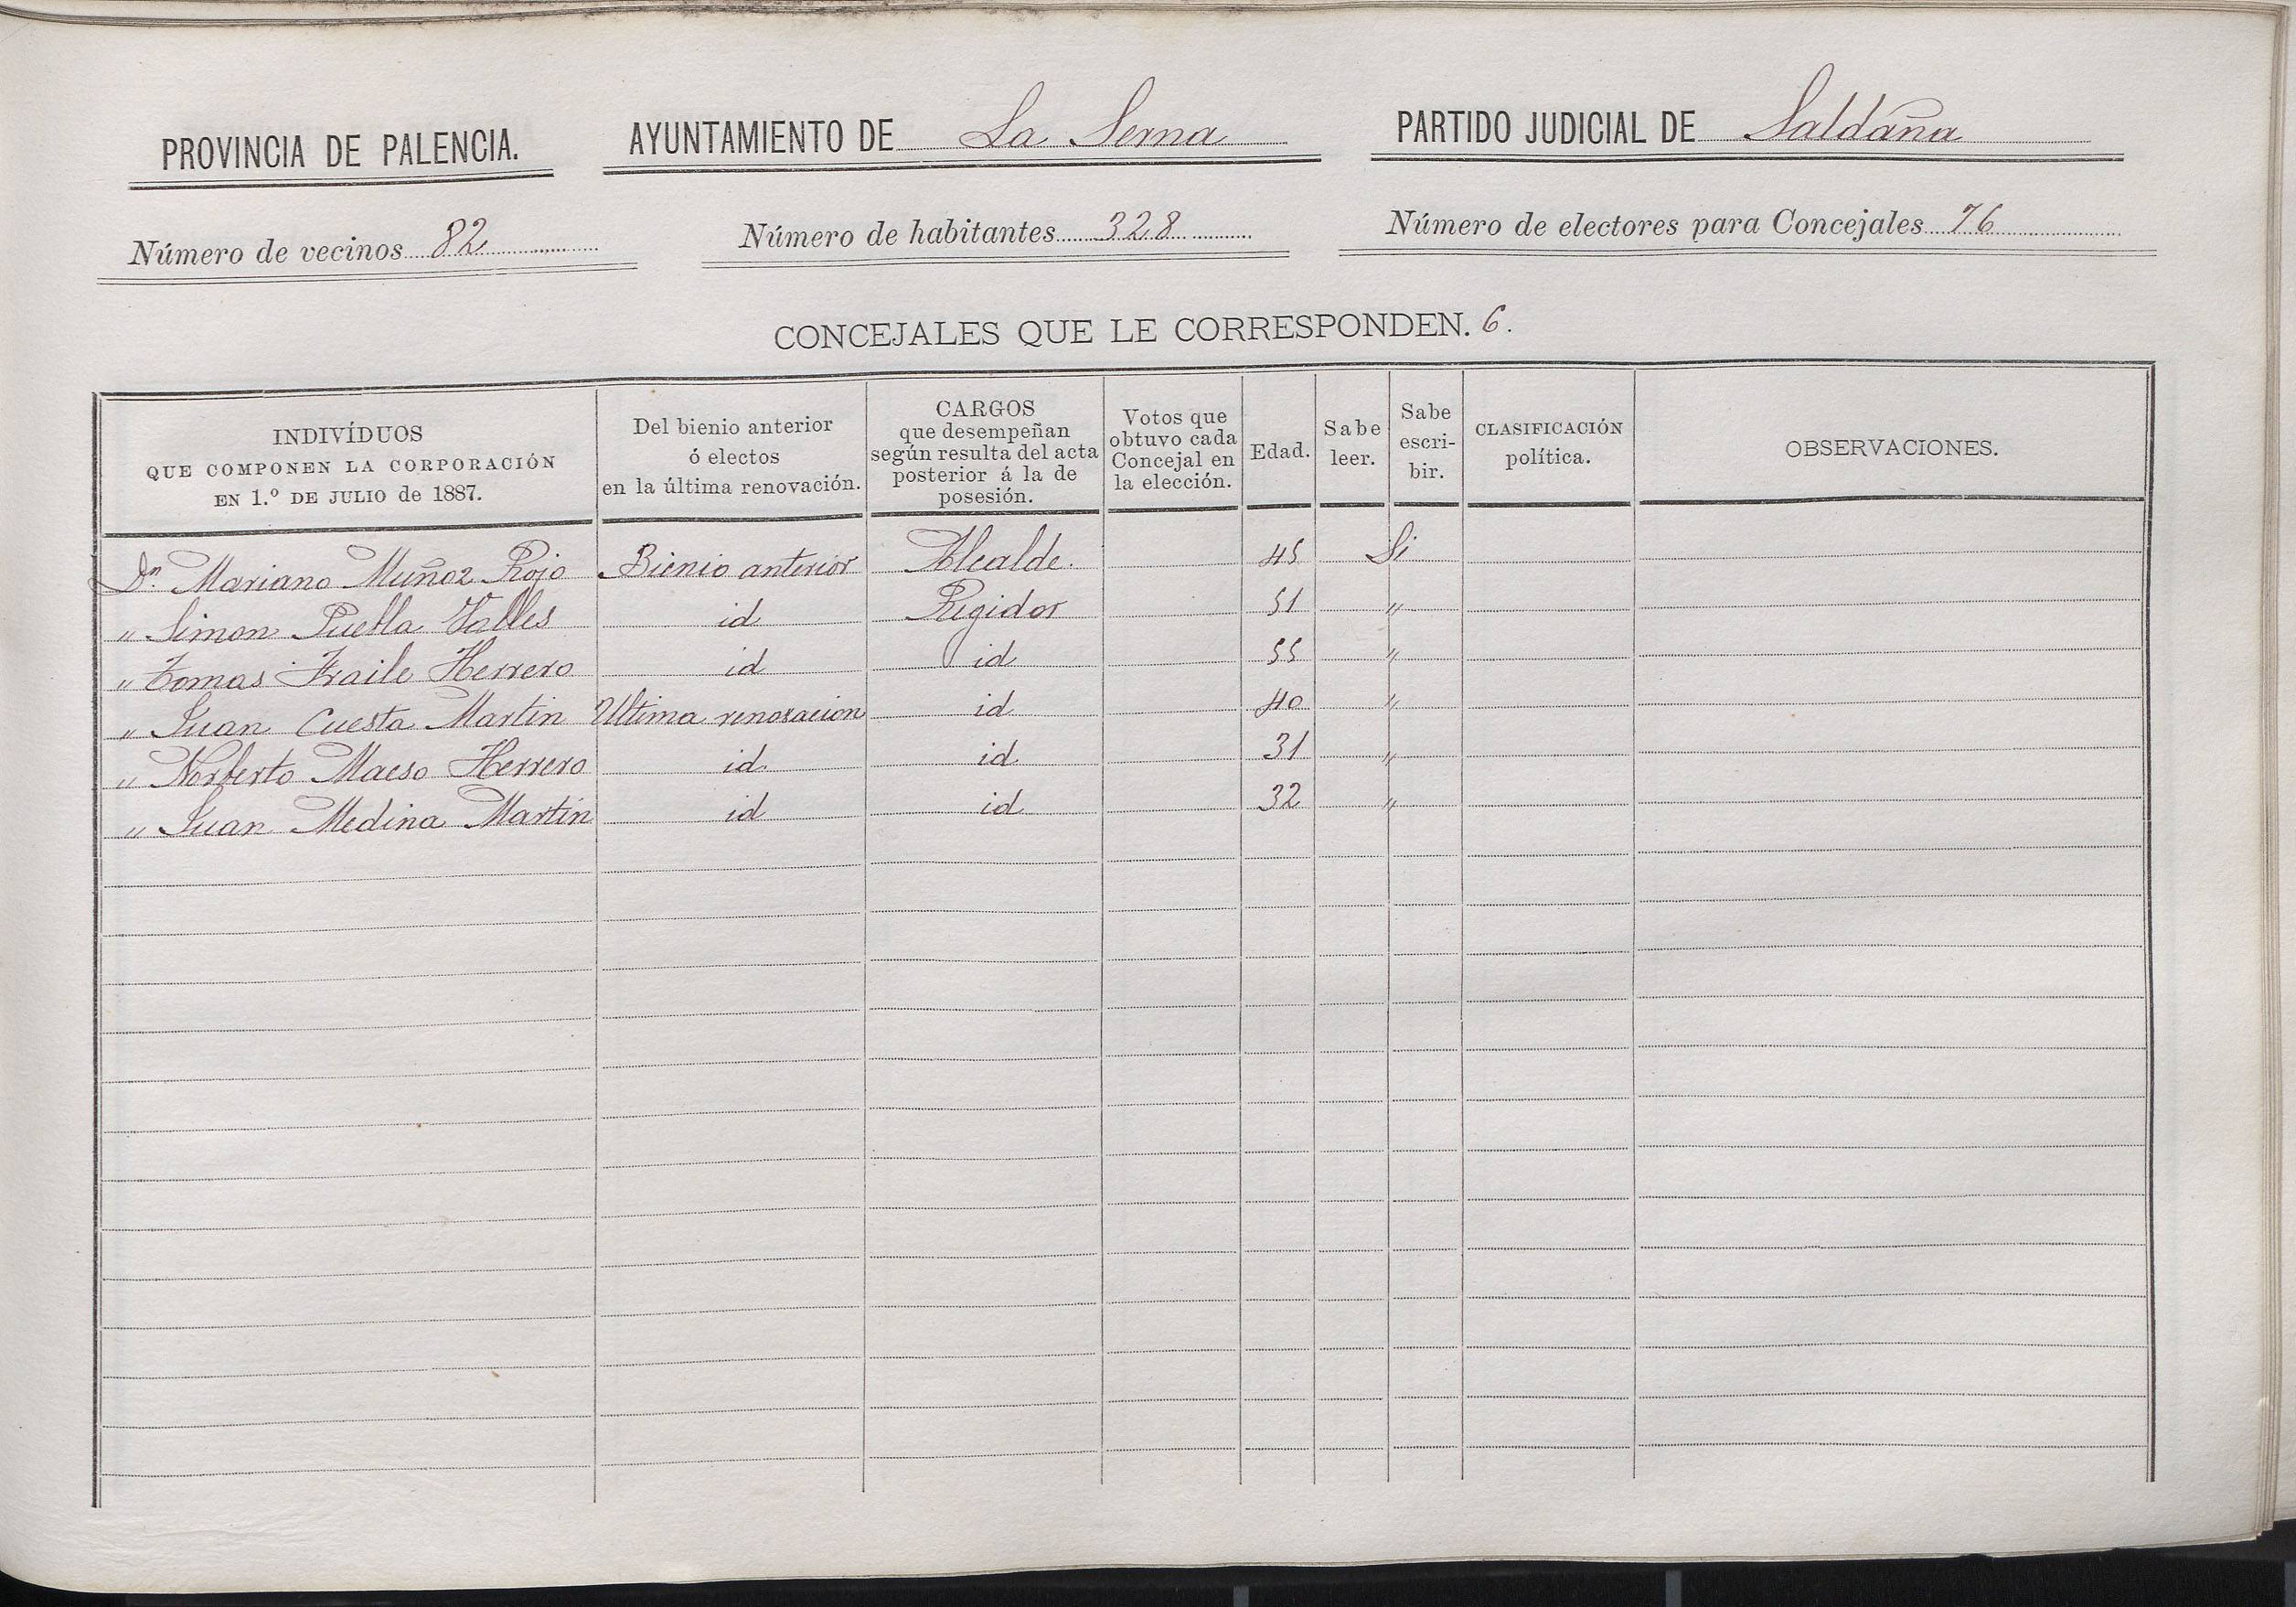 PROVINCIA DE PALENCIA. AYUNTAMIENTO DE La Serna PARTIDO JUDICIAL DE Saldaña
Número de vecinos 82 Número de habitantes 328 Número de electores para Concejales 76
CONCEJALES QUE LE CORRESPONDEN. 6.
INDIVÍDUOS
QUE COMPONEN LA CORPORACIÓN
EN 1.º DE JULIO de 1887.
Del bienio anterior
ó electos
en la última renovación.
CARGOS
que desempeñan
según resulta del acta
posterior á la de
posesión.
Votos que
obtuvo cada
Concejal en
la elección.
Edad.
Sabe
leer.
Sabe
escri-
bir.
CLASIFICACIÓN
política.
OBSERVACIONES.
Dn. Mariano Muñoz Rojo Bienio anterior Alcalde. 45 Si
" Simon Puebla Valles id Regidor 51 "
" Tomas Fraile Herrero id id 55 "
" Juan Cuesta Martin Ultima renovacion id 40 "
" Norberto Maeso Herrero id id 31 "
" Juan Medina Martin id id 32 "